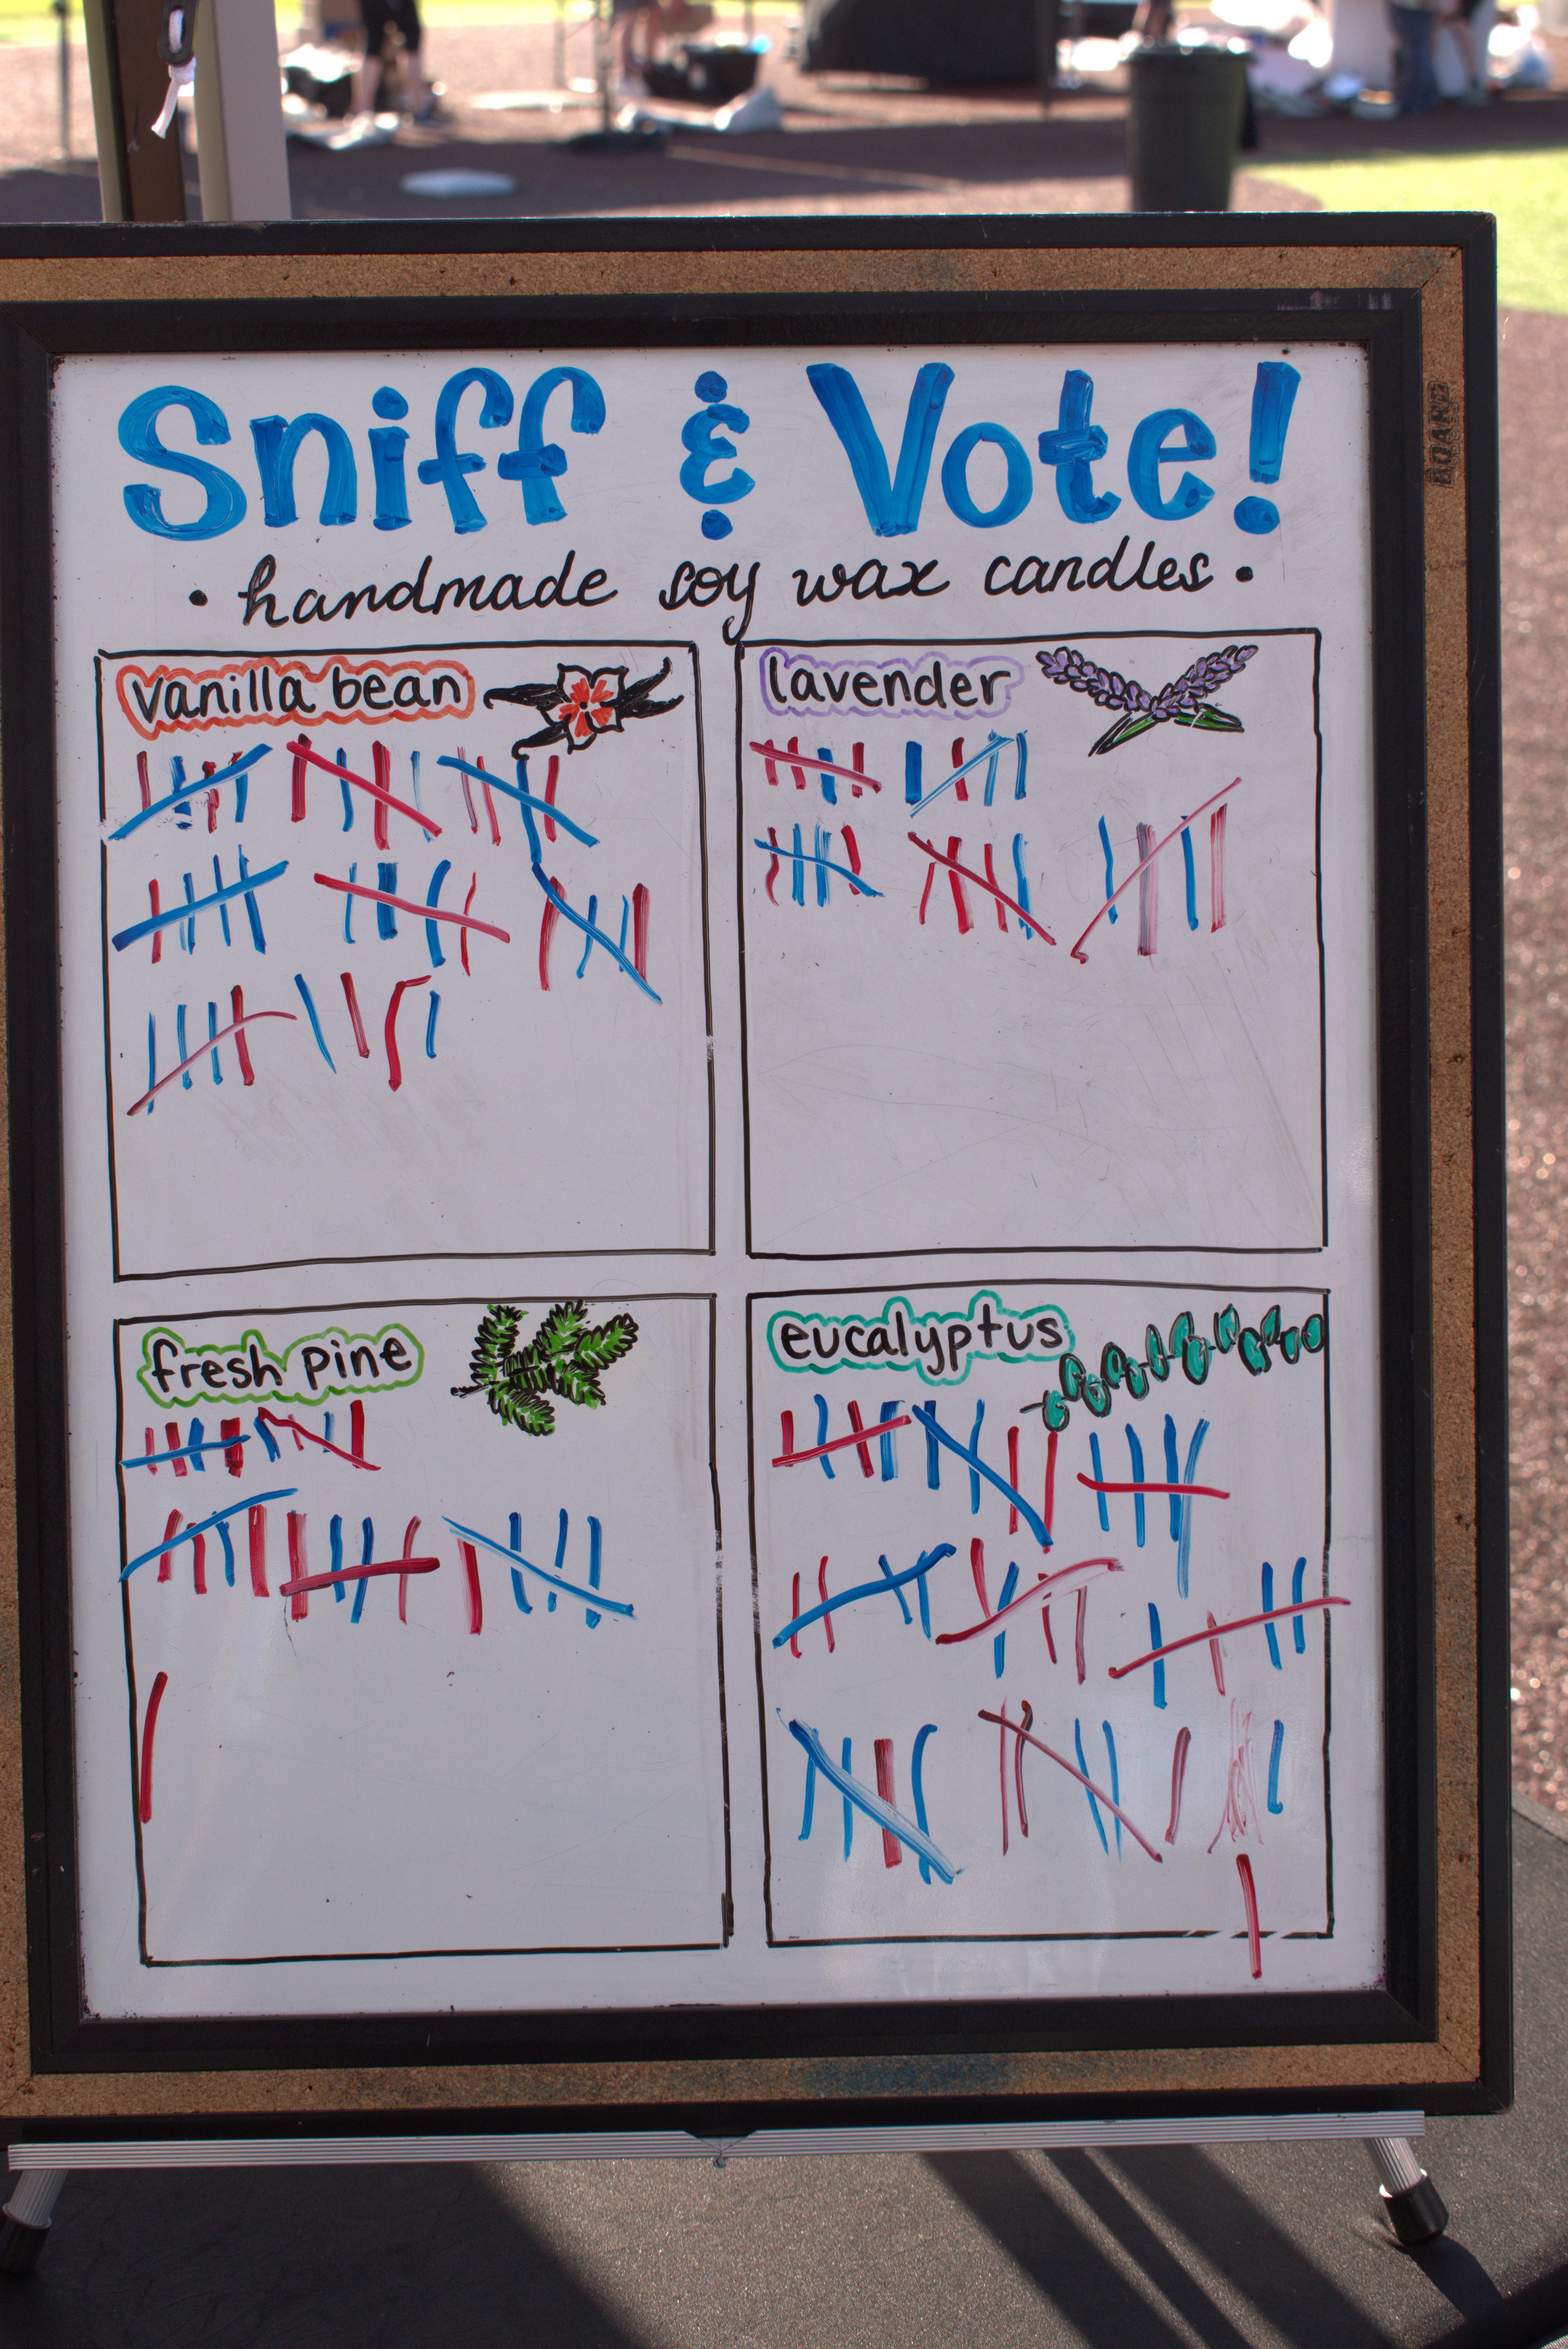 Sniff & Vote!
• handmade soy wax candles •
vanilla bean
lavender
fresh pine
eucalyptus
BOARD